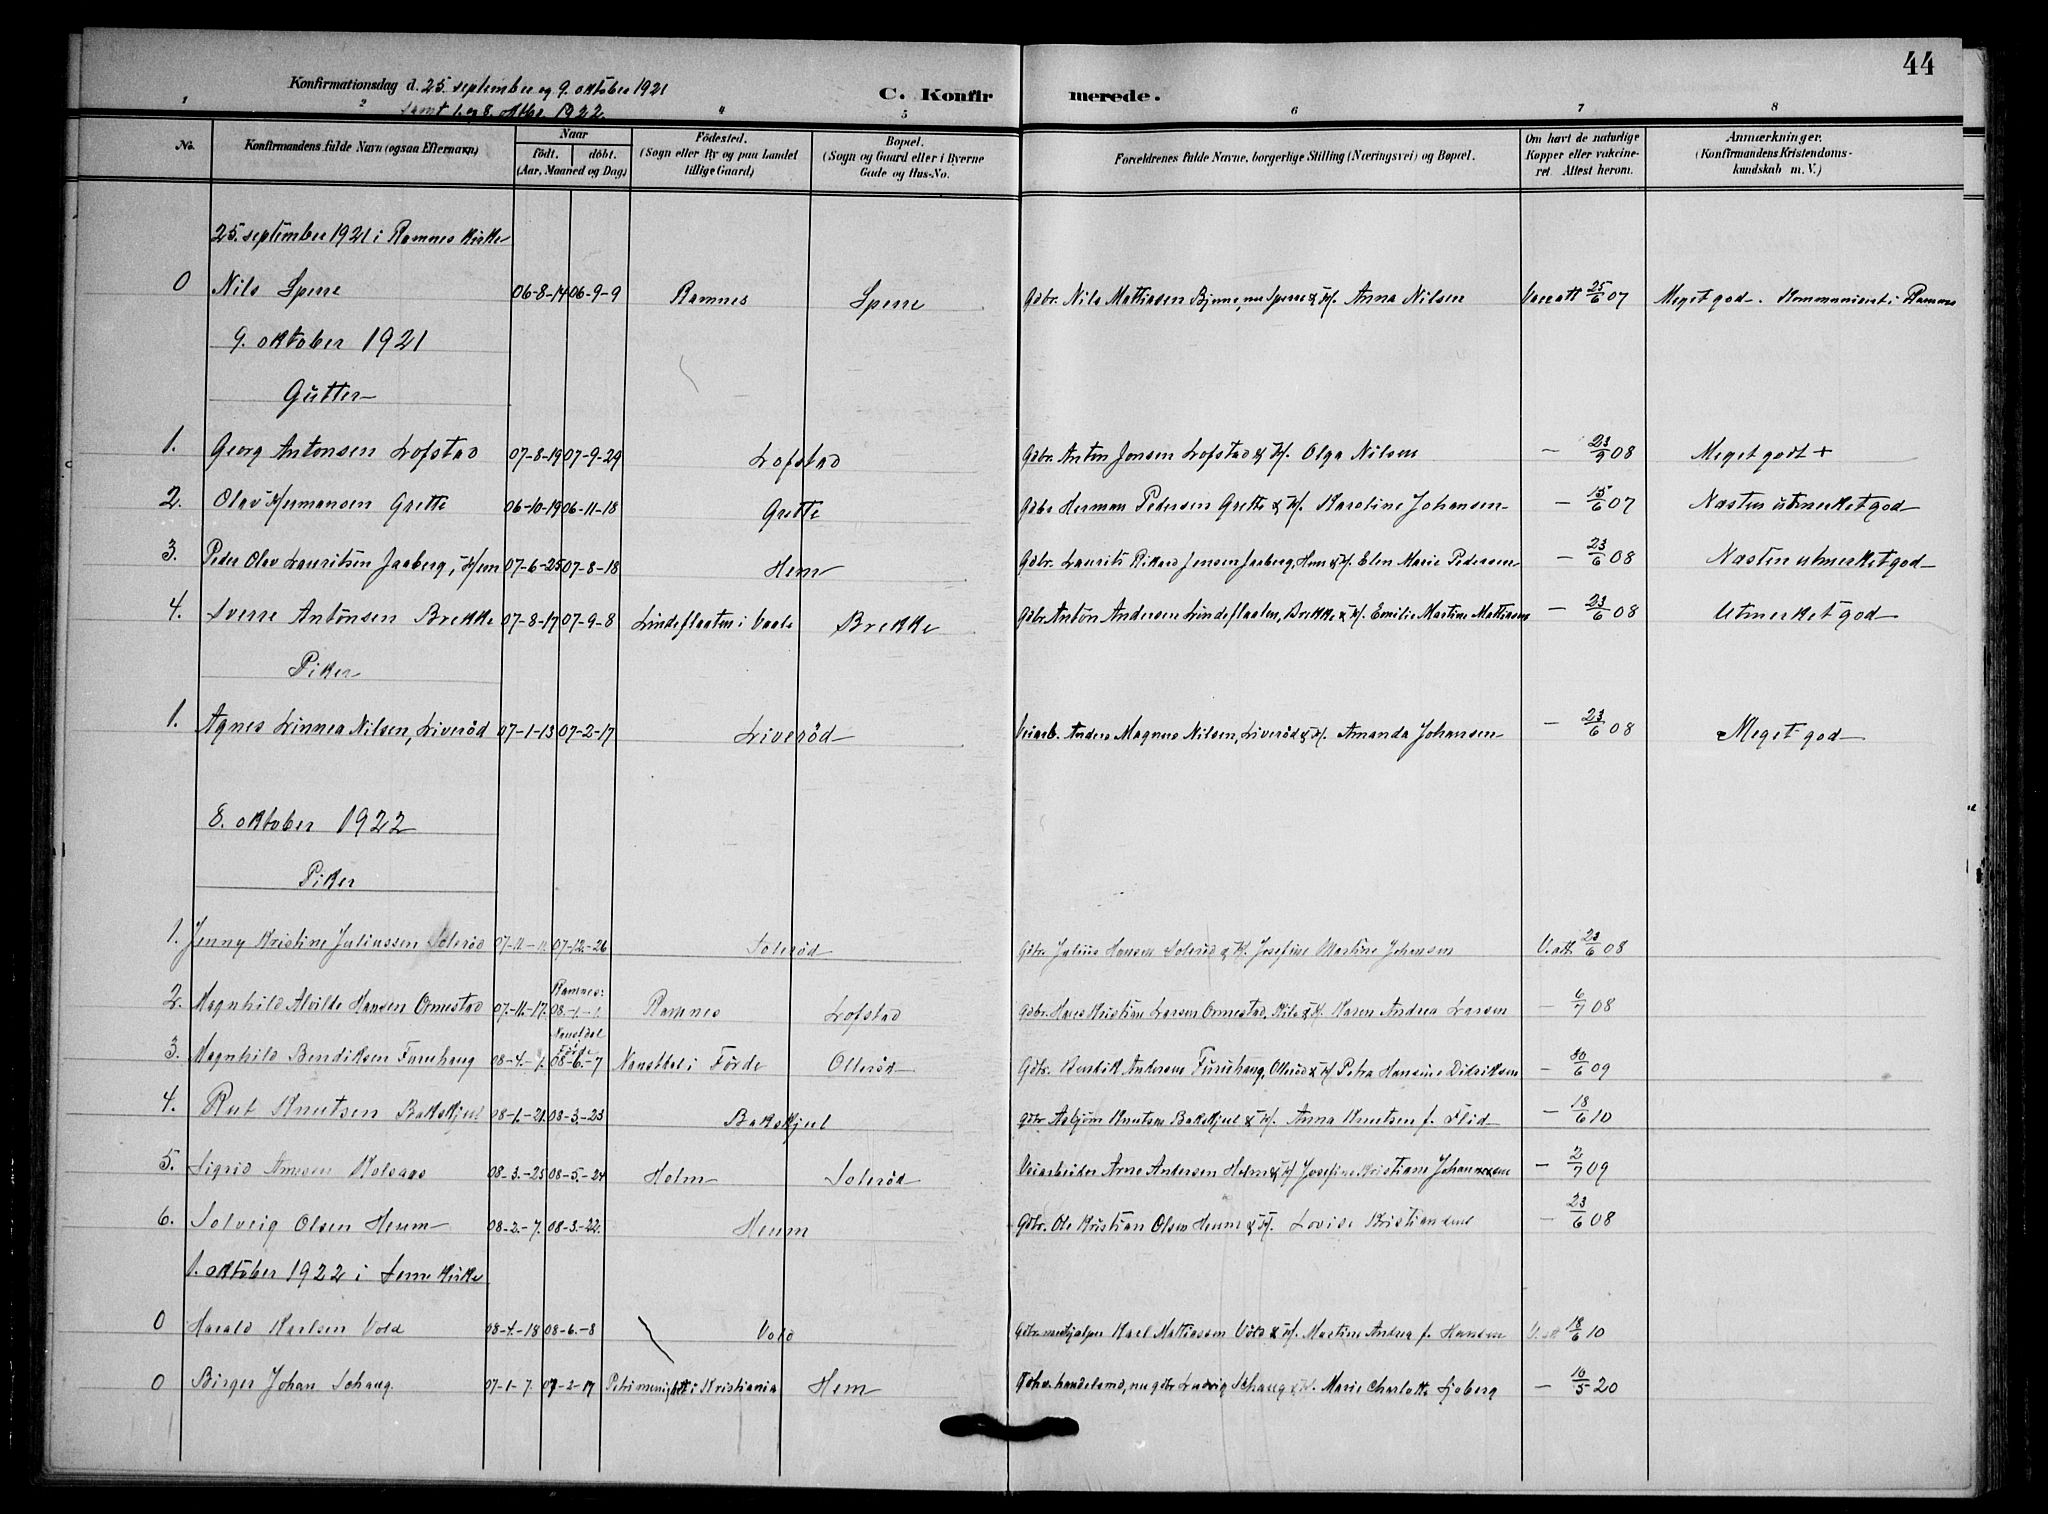 44
Konfirmationsdag d. 25. september og 9. oktober 1921
samt 1. og 8. oktbr. 1922
C. Konfirmerede.
1 2 3 4 5 6 7 8
No. Konfirmandens fulde Navn (ogsaa Efternavn) Naar født. døbt. (Aar, Maaned og Dag) Fødested. (Sogn eller By og paa Landet tillige Gaard) Bopæl. (Sogn og Gaard eller i Byerne Gade og Hus-No. Forældrenes fulde Navne, borgerlige Stilling (Næringsvei) og Bopæl. Om havt de naturlige Kopper eller vakcineret. Attest herom. Anmærkninger. (Konfirmandens Kristendomskundskab m. V.)
25. september 1921 i Ramnes kirke
0 Nils Sperre 06-8-14 06-9-9 Ramnes Sperre Gdbr. Nils Mattiasen Bjune, nu Sperre & H. Anna Nilsen Vacc.att 25/6 07 Meget god. Konfirmert i Ramnes
9. oktober 1921
Gutter
1. Georg Antonsen Lofstad 07-8-19 07-9-29 Lofstad Gdbr. Anton Jensen Lofstad & H. Olga Nilsen – 23/9 08 Meget godt +
2. Olav Hermansen Grette 06-10-19 06-11-18 Grette Gdbr Herman Pedersen Grette & H. Karoline Johansen – 15/6 07 Næsten utmerket god
3. Peder Olav Lauritsen Jaaberg, Hem 07-6-25 07-8-18 Hem Gdbr. Laurits Rikard Jensen Jaaberg, Hem & H. Elen Marie Pedersen – 23/6 08 Næsten utmerket god
4. Sverre Antonsen Brekke 07-8-17 07-9-8 Lindeflaaten i Vaale Brekke Gdbr Anton Andersen Lindeflaaten, Brekke & H. Emilie Martine Mattiasen – 23/6 08 Utmerket god
Piker
1. Agnes Linnea Nilsen, Liverød 07-1-13 07-2-17 Liverød Veiarb. Anders Magnus Nilsen, Liverød & H. Amanda Johansen – 23/6 08 Meget god
8. oktober 1922
Piker
1. Jenny Kristine Juliussen Solerød 07-11-11 07-12-26 Solerød Gdbr. Julius Hansen Solerød & H. Josefine Martine Johansen V. att. 23/6 08
2. Magnhild Alvilde Hansen Ormestad 07-11-17. Ramnes: 08-1-1. Ramnes Lofstad Gdbr. Hans Kristian Larsen Ormestad, Kile & H. Karen Andrea Larsen – 6/7 08
3. Magnhild Bendiksen Furuhaug 08-4-7. Naustdal Førde 08-6-7 Naustdal i Førde Ollerød Gdbr. Bendik Andersen Furuhaug, Ollerød & H Petra Hansine Didriksen – 30/6 09
4. Rut Knutsen Bakskjul 08-1-21 08-3-23 Bakskjul Gdbr Asbjørn Knutsen Bakskjul & H. Anna Knutsen f. Flid – 18/6 10
5. Sigrid Arnesen Kolsaas 08-3-25 08-5-24 Holm Solerød Veiarbeiker Arne Andersen Holm & H Josefine Kristiane Johannessen – 2/7 09
6. Solveig Olsen Heum 08-2-7. 08-3-22. Heum Gdbr. Ole Kristian Olsen Heum & H. Lovise Kristiansen – 23/6 08
1. oktober 1922 i Sem kirke
0 Harald Karlsen Vold 08-4-18 08-6-8 Vold Karl Mattiassen Vold & H. Martine Andrea f. Hansen V. att 18/6 10
0 Birger Johan Schaug 07-1-7. 07-2-17 Petri menighet i Kristiania Hem handelsmd, nu gdbr Ludvig Schaug & H. Marie Charlotte Sjøberg – 10/5 20